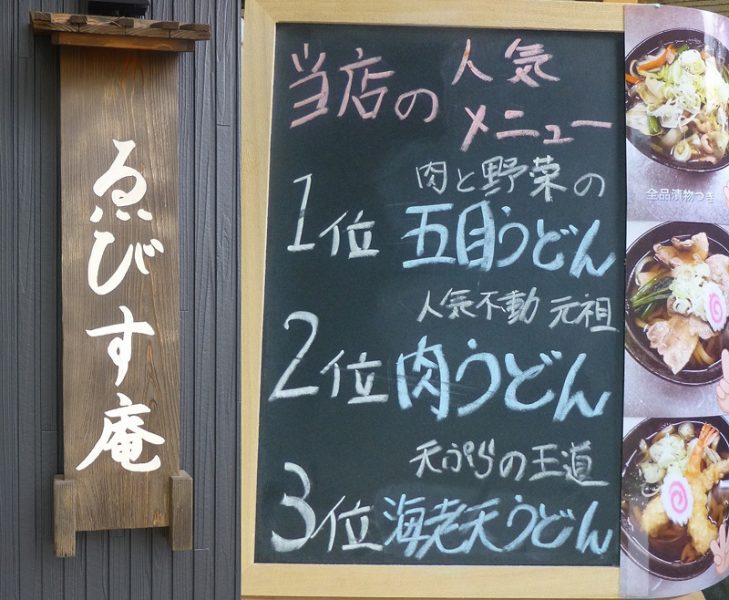 ゑびす庵
当店の人気
メニュー
1位
肉と野菜の
五目うどん
2位
人気不動 元祖
肉うどん
3位
天ぷらの王道
海老天うどん
全品漬物つき